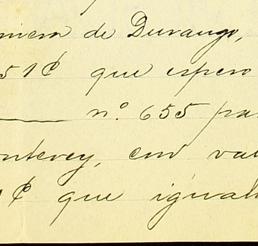 niera de Durango,
51₵ que espero
n.º 655 pa
onterey, con val
1₵ que iguala